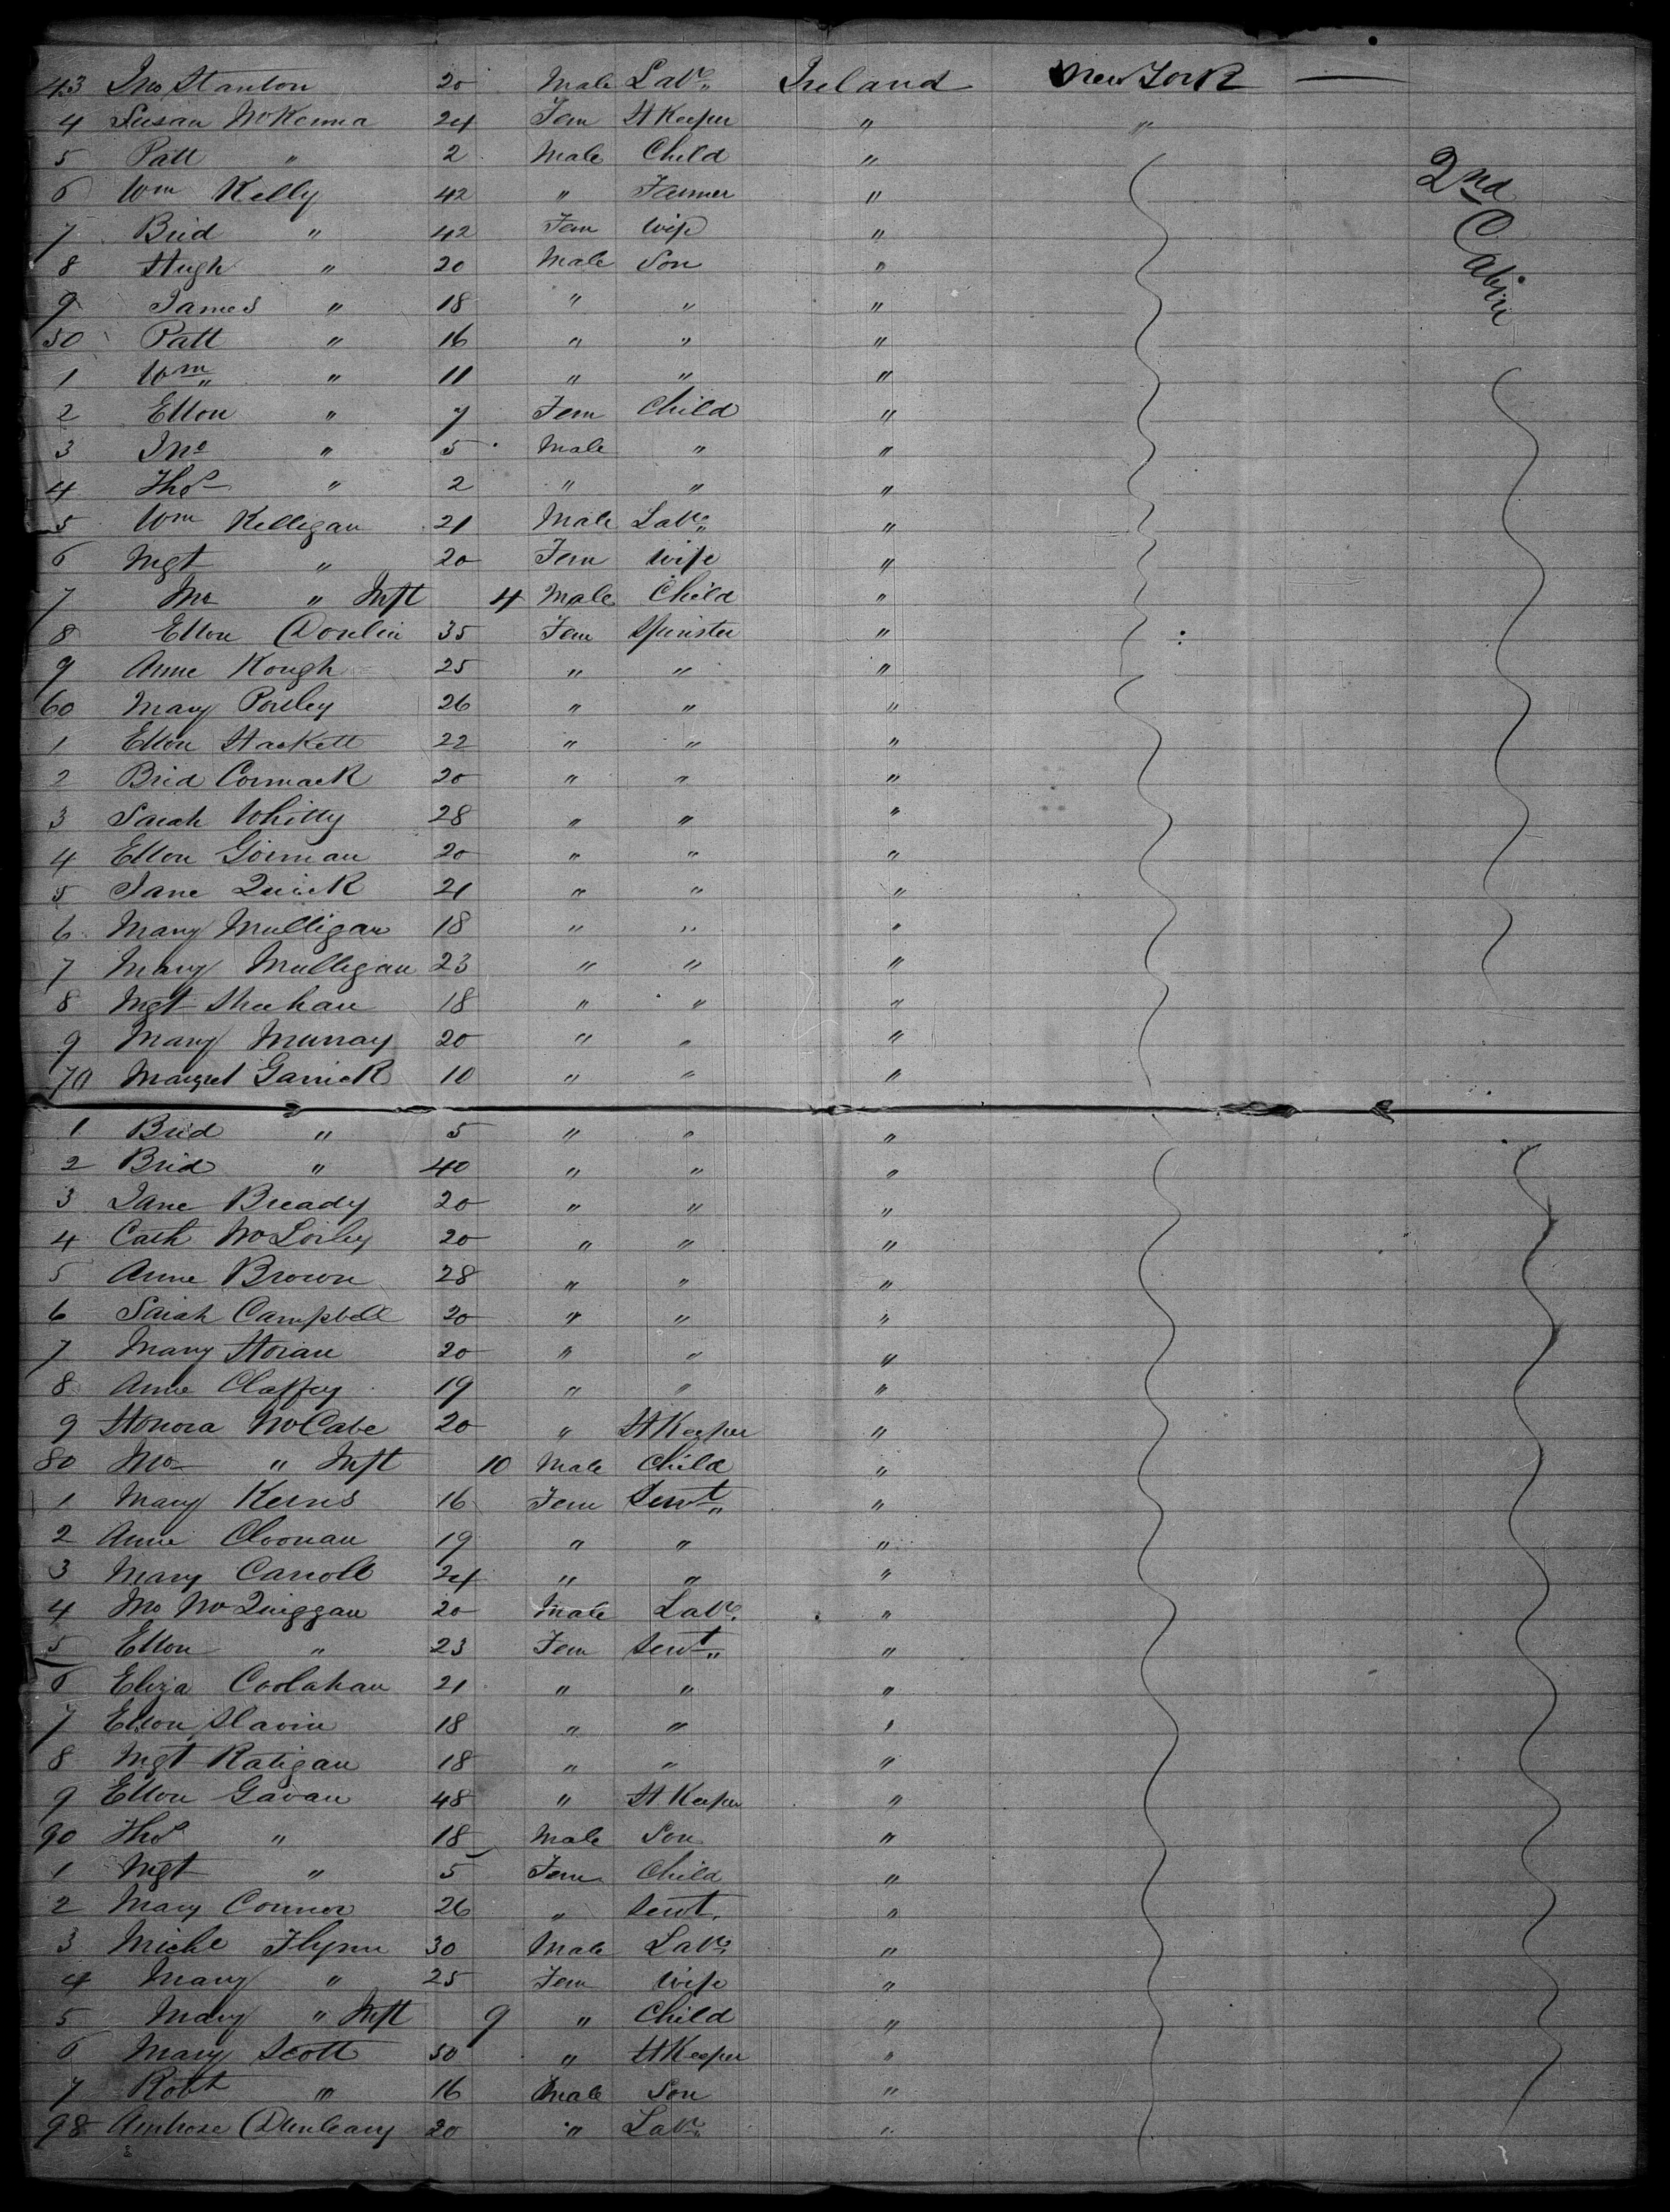 43 Jno Stanton 20 Male Labr Ireland New York —
4 Susan McKenna 24 Fem H Keeper " "
5 Patt " 2 Male Child "
2nd Cabin
6 Wm Kelly 42 " Farmer "
7 Brid " 42 Fem Wife "
8 Hugh " 20 Male Son "
9 James " 18 " " "
50 Patt " 16 " " "
1 Wm " 11 " " "
2 Ellen " 7 Fem Child "
3 Jno " 5 Male " "
4 Thos " 2 " " "
5 Wm Kelligan 21 Male Labr "
6 Mgt " 20 Fem Wife "
7 Jno " Inft 4 Male Child "
8 Ellen Donlin 35 Fem Spinster "
9 Anne Kough 25 " " "
60 Mary 26 " " "
1 Ellen Hackett 22 " " "
2 Brid Cormack 20 " " "
3 Sarah Whitty 28 " " "
4 Ellen Gorman 20 " " "
5 Jane Quick 21 " " "
6 Mary Mulligan 18 " " "
7 Mary Mulligan 23 " " "
8 Mgt Sheehan 18 " " "
9 Mary Murray 20 " " "
70 Margret Garrick 10 " " "
1 Brid " 5 " " "
2 Brid " 40 " " "
3 Jane Bready 20 " " "
4 Cath 20 " " "
5 Anne Brown 28 " " "
6 Sarah Campbell 20 " " "
7 Mary Horan 20 " " "
8 Anne Claffey 19 " " "
9 Honora McCabe 20 " H Keeper "
80 Jno " Inft 10 Male Child "
1 Mary Kerns 16 Fem Servt "
2 Anne Cloonan 19 " " "
3 Mary Carroll 24 " " "
4 Jno McQuiggan 20 Male Labr "
5 Ellen " 23 Fem Servt "
6 Eliza Coolahan 21 " " "
7 Ellen Slavin 18 " " "
8 Mgt Ratigan 18 " " "
9 Ellen Gavan 48 " H Keeper "
90 Thos " 18 Male Son "
1 Mgt " 5 Fem Child "
2 Mary Connor 26 " Servt "
3 Michl Flynn 30 Male Labr "
4 Mary " 25 Fem Wife "
5 Mary " Inft 9 " Child "
6 Mary Scott 50 " H Keeper "
7 Robt " 16 Male Son "
98 Ambrose Dunleavy 20 " Labr "